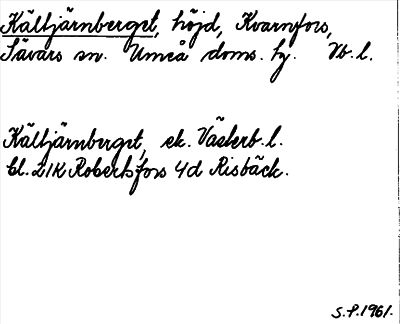 Kältjärnberget, höjd, Kvarnfors,
Sävars sn. Umeå doms. hy. Vb. l.
Kältjärnberget, ek. Västerb. l.
bl. 21K Robertsfors 4d Risbäck.
S.P.1961.